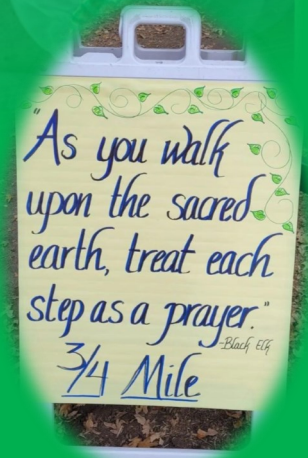 "As you walk
upon the sacred
earth, treat each
step as a prayer."
-Black Elk
3/4 Mile